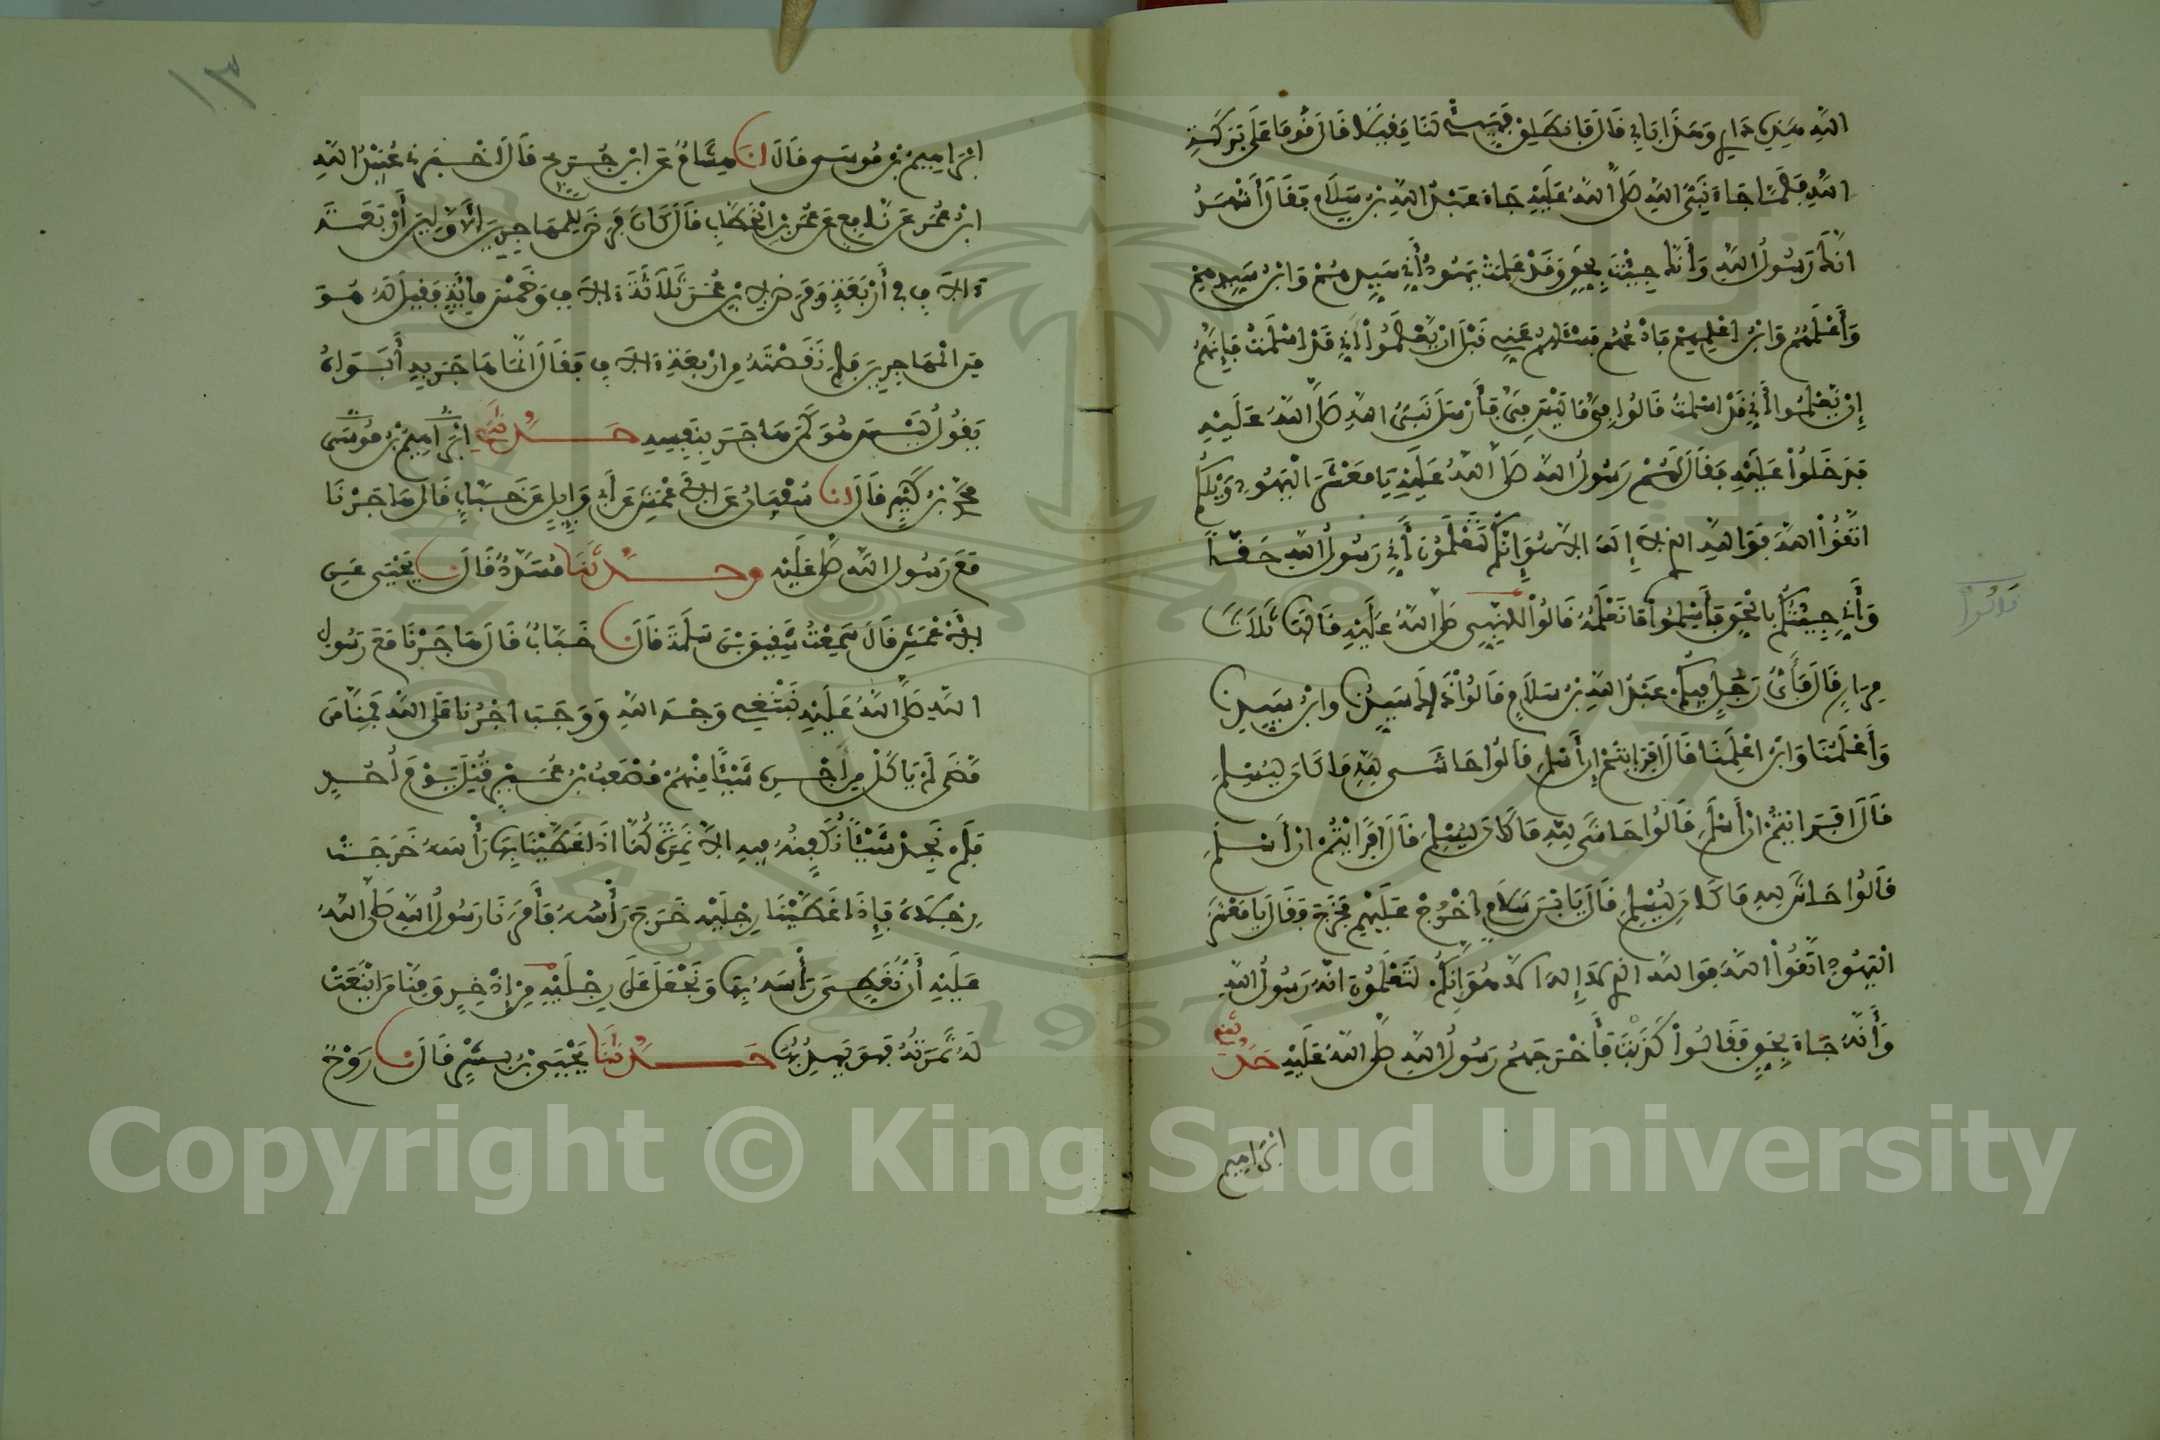 الله هذه داري وهذا بابي قال فانطلق فهيئ لنا مقيلا قال قوما على بركة
الله فلما جاء نبي الله صلى الله عليه جاء عبد الله بن سلام فقال أشهد
انك رسول الله وأنك جئت بحق وقد علمت يهود أني سيدهم وابن سيدهم
وأعلمهم وابن اعلمهم فادعهم فسئلهم عني قبل ان يعلموا أني قد اسلمت فإنهم
إن يعلموا أني قد اسلمت قالوا في ما ليس في فأرسل نبي الله صلى الله عليه
فدخلوا عليه فقال لهم رسول الله صلى الله عليه يا معشر اليهود ويلكم
اتقوا الله فوالله الذي لا إله الا هو إنكم لتعلمون أني رسول الله حقا
وأني جئتكم بالحق فأسلموا قالوا ما نعلمه قالوا للنبي صلى الله عليه قالها ثلاث
مرار قال فأي رجل فيكم عبد الله بن سلام قالوا ذاك سيدنا وابن سيدنا
وأعلمنا وابن اعلمنا قال افرايتم إن أسلم قالوا حاشى لله ما كان ليسلم
قال افرايتم ان أسلم قالوا حاشى لله ما كان ليسلم قال افرايتم ان أسلم
قالوا حاشى لله ما كان ليسلم قال يا بن سلام اخرج عليهم فخرج فقال يا معشر
اليهود اتقوا الله فوالله الذي لا إله الا هو إنكم لتعلمون انه رسول الله
وأنه جاء بحق فقالوا كذبت فأخرجهم رسول الله صلى الله عليه حدثني
ابراهيم
قالوا
١٣
ابراهيم بن موسى قال انا هشام عن ابن جريج قال اخبرني عبيد الله
ابن عمر عن نافع عن عمر بن الخطاب قال كان فرض للمهاجرين الأولين أربعة
ءالاف في أربعة وفرض لابن عمر ثلاثة ءالاف وخمس مائة فقيل له هو
من المهاجرين فلم نقصته من اربعة ءالاف فقال انما هاجر به أبواه
يقول ليس هو كمن هاجر بنفسه حدثني ابراهيم بن موسى
محمد بن كثير قال انا سفيان عن الاعمش عن أبي وايل عن خباب قال هاجرنا
مع رسول الله صلى عليه وحدثنا مسدد قال نا يحيى عن
الاعمش قال سمعت شقيق بن سلمة قال نا خباب قال هاجرنا مع رسول
الله صلى الله عليه نبتغي وجه الله ووجب اجرنا على الله فمنا من
مضى لم ياكل من أجره شيئا منهم مصعب بن عمير قتل يوم أحد
فلم نجد شيئا نكفنه فيه الا نمرة كنا اذا غطينا بها رأسه خرجت
رجلاه فإذا غطينا رجليه خرج رأسه فأمرنا رسول الله صلى الله
عليه أن نغطي رأسه بها ونجعل على رجليه من إذخر ومنا من اينعت
له ثمرته فهو يهدبها حدثنا يحيى بن بشر قال نا روح
Copyright © King Saud University
1957